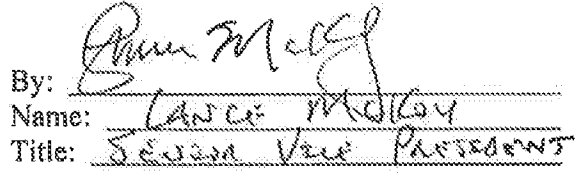 By:
Name: LANCE McKoy
Title: SENIOR VICE PRESIDENT